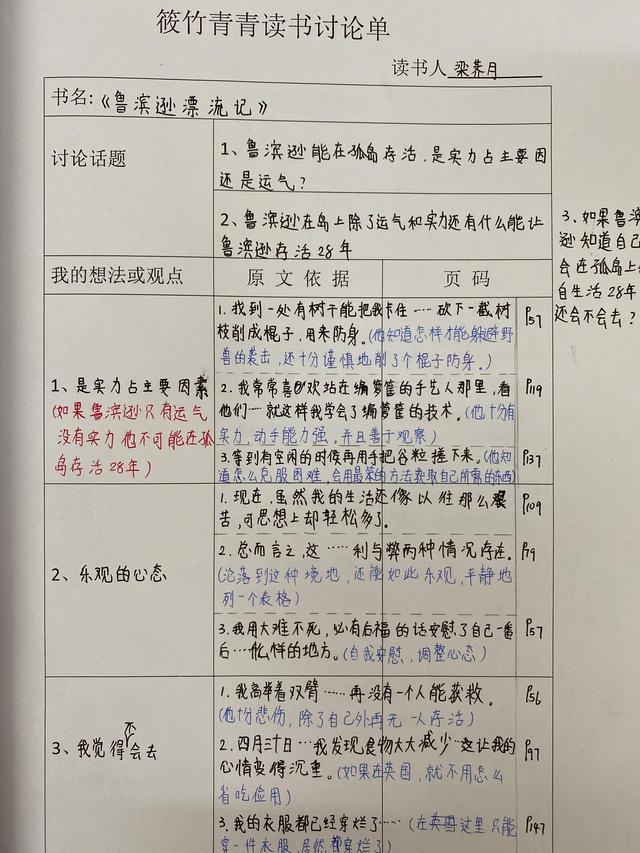 筱竹青青读书讨论单
读书人 梁荞月
书名:《鲁滨逊漂流记》
讨论话题
1、鲁滨逊能在孤岛存活,是实力占主要因
还是运气?
2、鲁滨逊在岛上除了运气和实力还有什么能让
鲁滨逊存活28年
3、如果鲁滨
逊知道自己
会在孤岛上
自生活28年
还会不会去?
我的想法或观点
原文依据
页码
1、是实力占主要因素
(如果鲁滨逊只有运气
没有实力他不可能在孤
岛存活28年)
1.找到一处有树干能把我卡住……砍下一截树
枝削成棍子,用来防身。(他知道怎样才能躲避野
兽的袭击,还十分谨慎地削了个棍子防身。)
P57
2.我常常喜欢站在编箩筐的手艺人那里,看
他们…就这样我学会了编箩筐的技术。(他十分有
实力,动手能力强,并且善于观察)
P119
3.等到有空闲的时候再用手把谷粒搓下来。(他知
道怎么克服困难,会用最笨的方法获取自己所需的东西)
P137
2、乐观的心态
1.现在,虽然我的生活还像以往那么艰
苦,可思想上却轻松多了。
P109
2.总而言之,这……利与弊两种情况存在。
(沦落到这种境地,还能如此乐观,平静地
列一个表格)
P79
3.我用大难不死,必有后福的话安慰了自己一番
后…什么样的地方。(自我安慰,调整心态)
P57
3、我觉得不会去
1.我高举着双臂……再没有一个人能获救。
(他十分悲伤,除了自己外再无一人存活)
P56
2.四月三十日…我发现食物大大减少…这让我的
心情变得沉重。(如果在英国,就不用怎么
省吃俭用)
P97
3.我的衣服都已经穿烂了……(在英国这里只能
穿一件衣服,居然都穿烂了)
P147